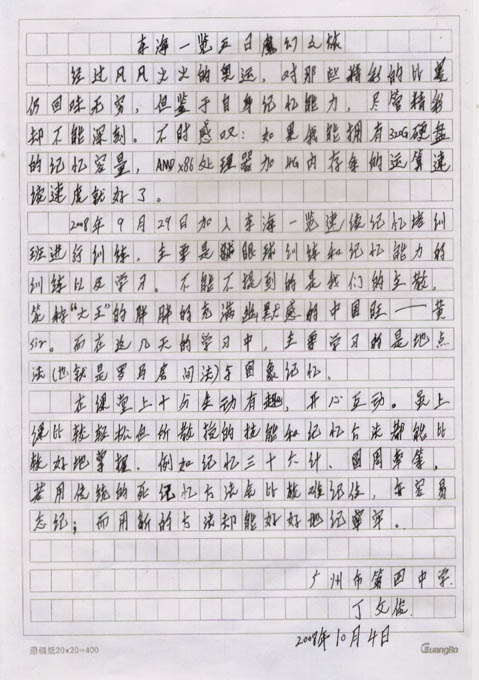 东海一览五日魔幻之旅
经过风风火火的奥运，对那些精彩的比赛
仍回味无穷，但鉴于自身记忆能力，尽管精彩
却不能深刻。不时感叹：如果我能拥有320G硬盘
的记忆容量，AMD x86处理器加内存条的运算速
度就好了。
2008年9月29日加入东海一览速读记忆培训
班进行训练，主要是眼球训练和记忆能力的
训练以及学习。不能不提到的是我们的主教，
笔称“大王”的胖胖的充满幽默感的中国旺——黄
sir。而在这几天的学习中，主要学习的是地点
法(也就是罗马房间法)与图象记忆。
在课堂上十分生动有趣，开心互动。虽上
课比较轻松但所教授的技能和记忆方法都能比
较好地掌握。例如记忆三十六计、圆周率等，
若用传统的死记忆方法是比较难记住，与容易
忘记；而用新的方法却能好好地记牢牢。
广州市第四中学
丁文俊
2008年10月4日
原稿纸20×20=400
GuangBo